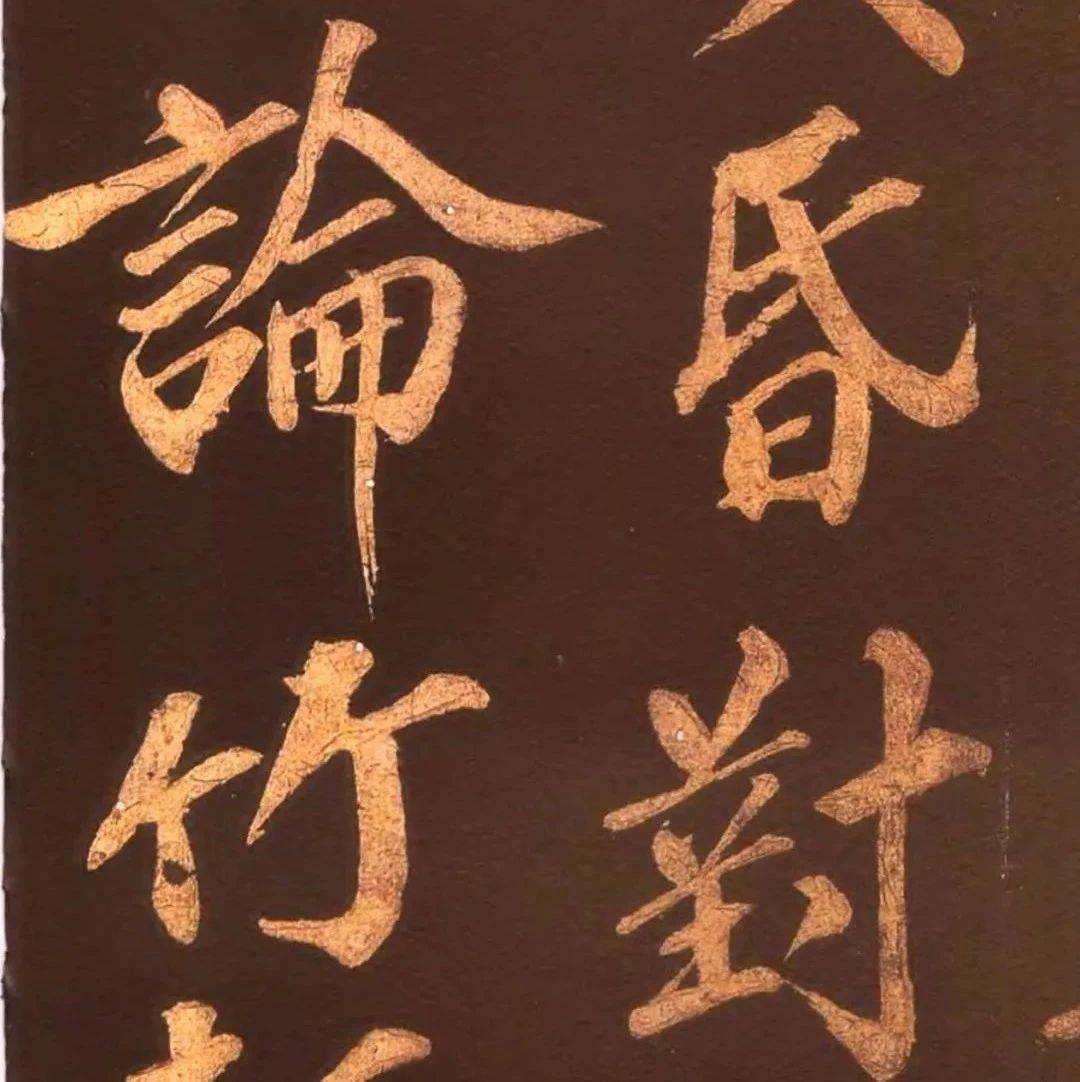 昏對
論竹